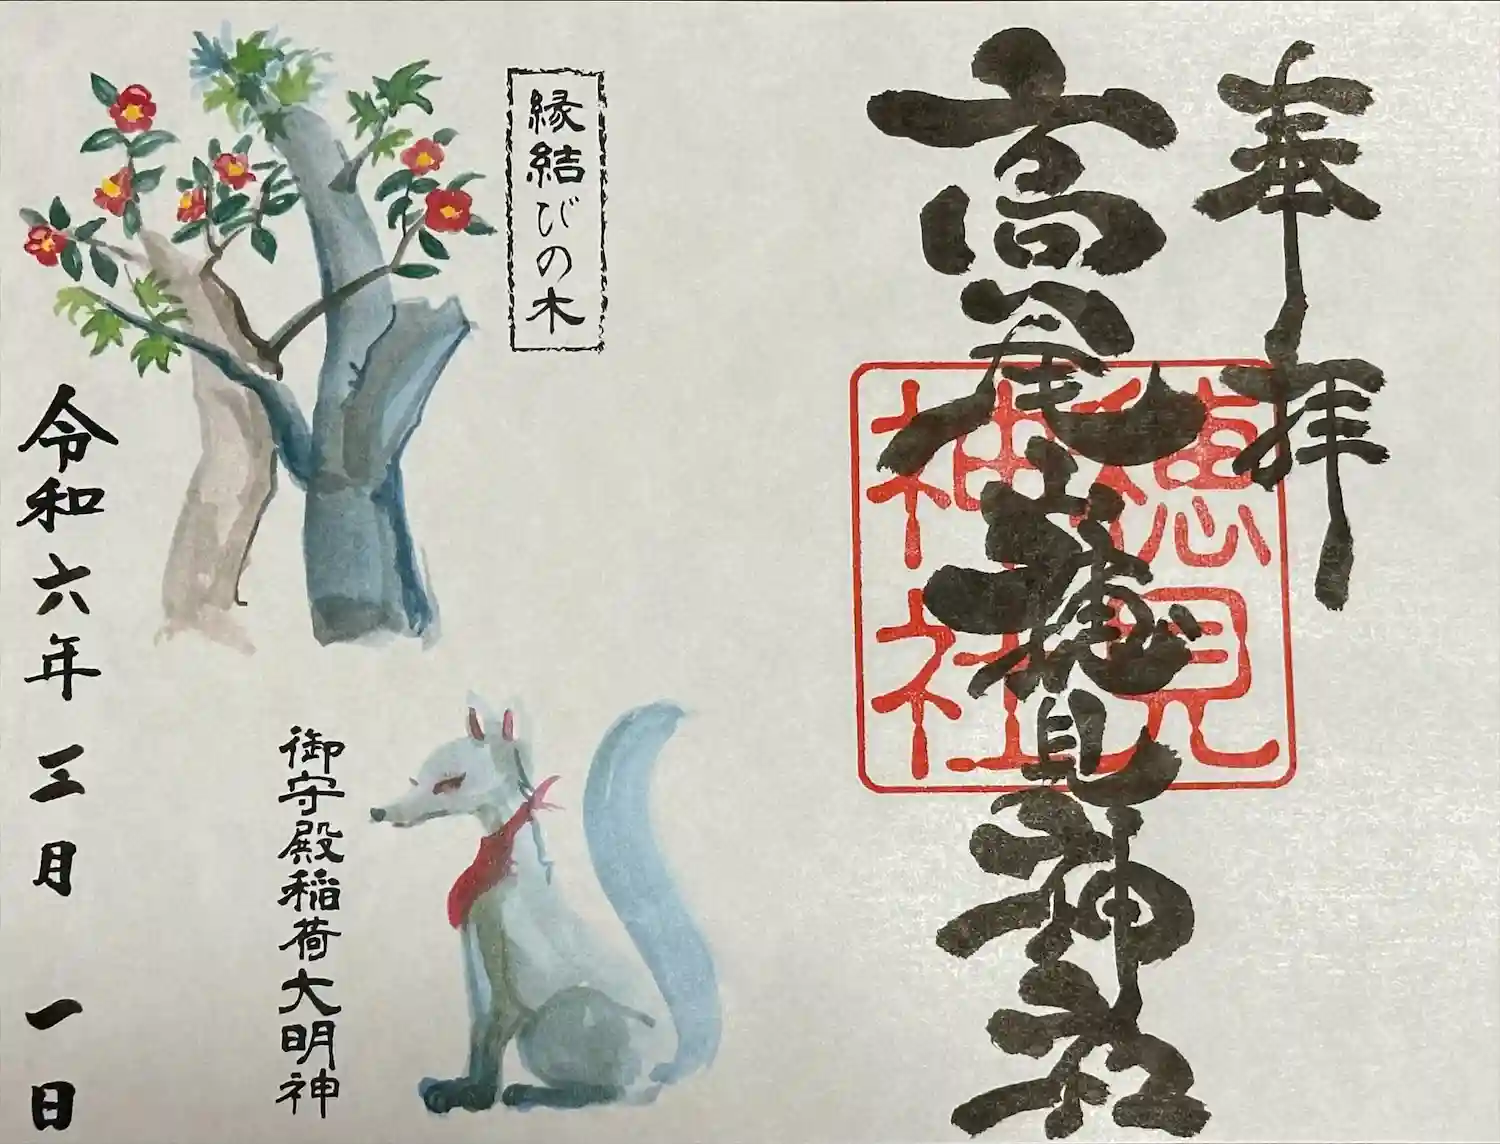 奉拝
高尾山穂見神社
穂見
神社
縁結びの木
御守殿稲荷大明神
令和六年三月一日